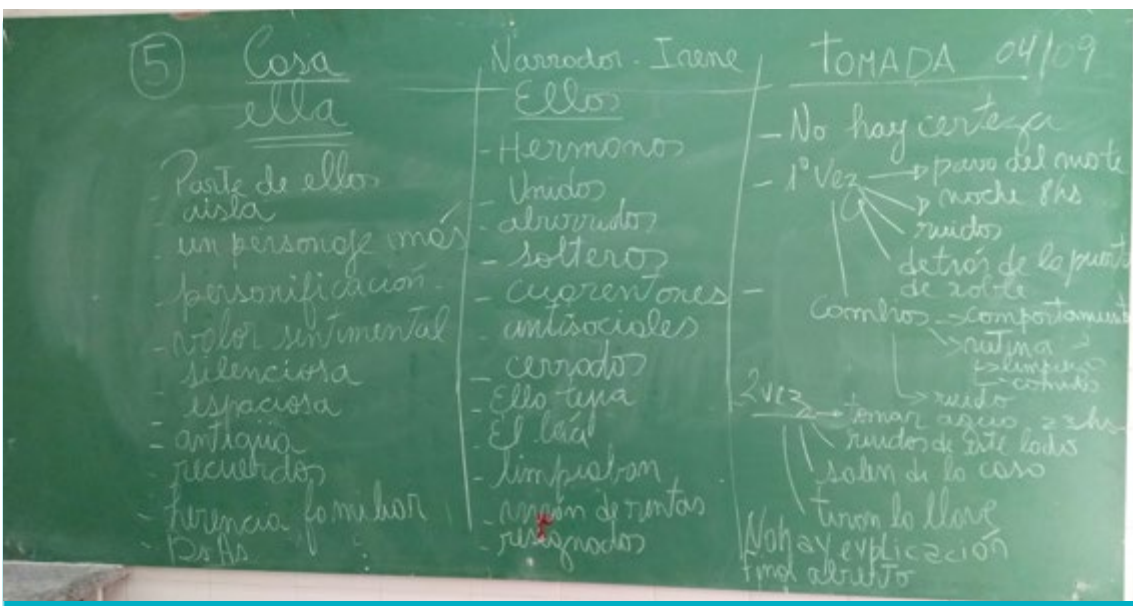 5
Casa
ella
Parte de ellos
- aisla
- un personaje más
- personificación
- valor sentimental
- silenciosa
- espaciosa
- antigua
- recuerdos
- herencia familiar
- Bs. As.
Narrador - Irene
Ellos
- Hermanos
- Unidos
- aburridos
- solteros
- cuarentones
- antisociales
- cerrados
- Ella tejía
- El leía
- limpiaban
- vivían de rentas
- resignados
TOMADA 04/09
- No hay certeza
- 1° Vez → pava del mate
noche 8hs
ruidos
detrás de la puerta
de roble
- Cambios → comportamiento
rutina
limpieza
comidas
ruido
2 vez → tomar agua 23hs
ruidos de este lado
salen de la casa
tiran la llave
No hay explicación
final abierto